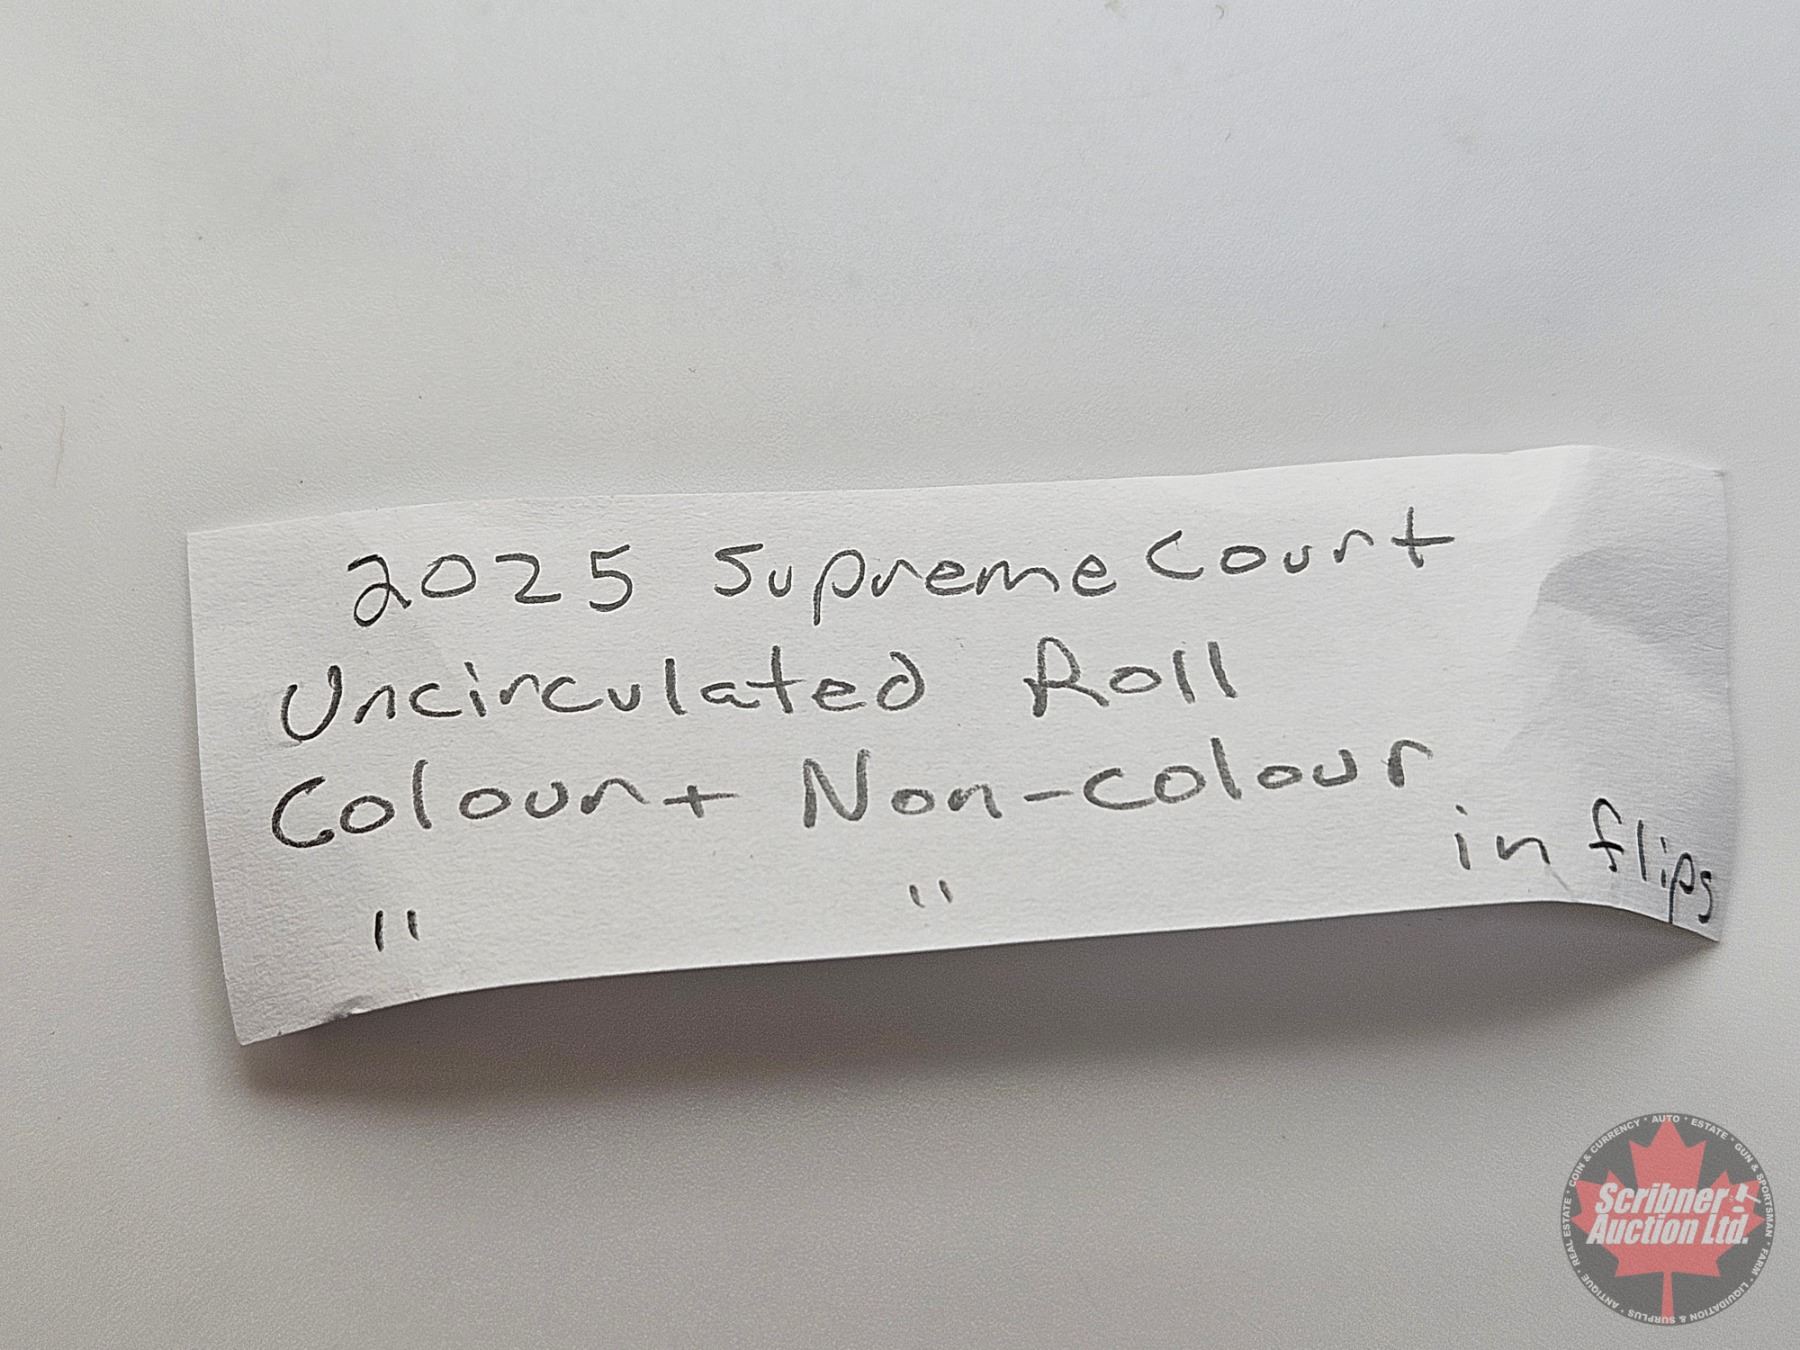 2025 Supreme Court
Uncirculated Roll
Colour + Non-colour
" " in flips
Scribner
Auction Ltd.
COIN & CURRENCY • AUTO • ESTATE • GUN & SPORTSMAN • FARM • LIQUIDATION & SURPLUS • ANTIQUE • REAL ESTATE •